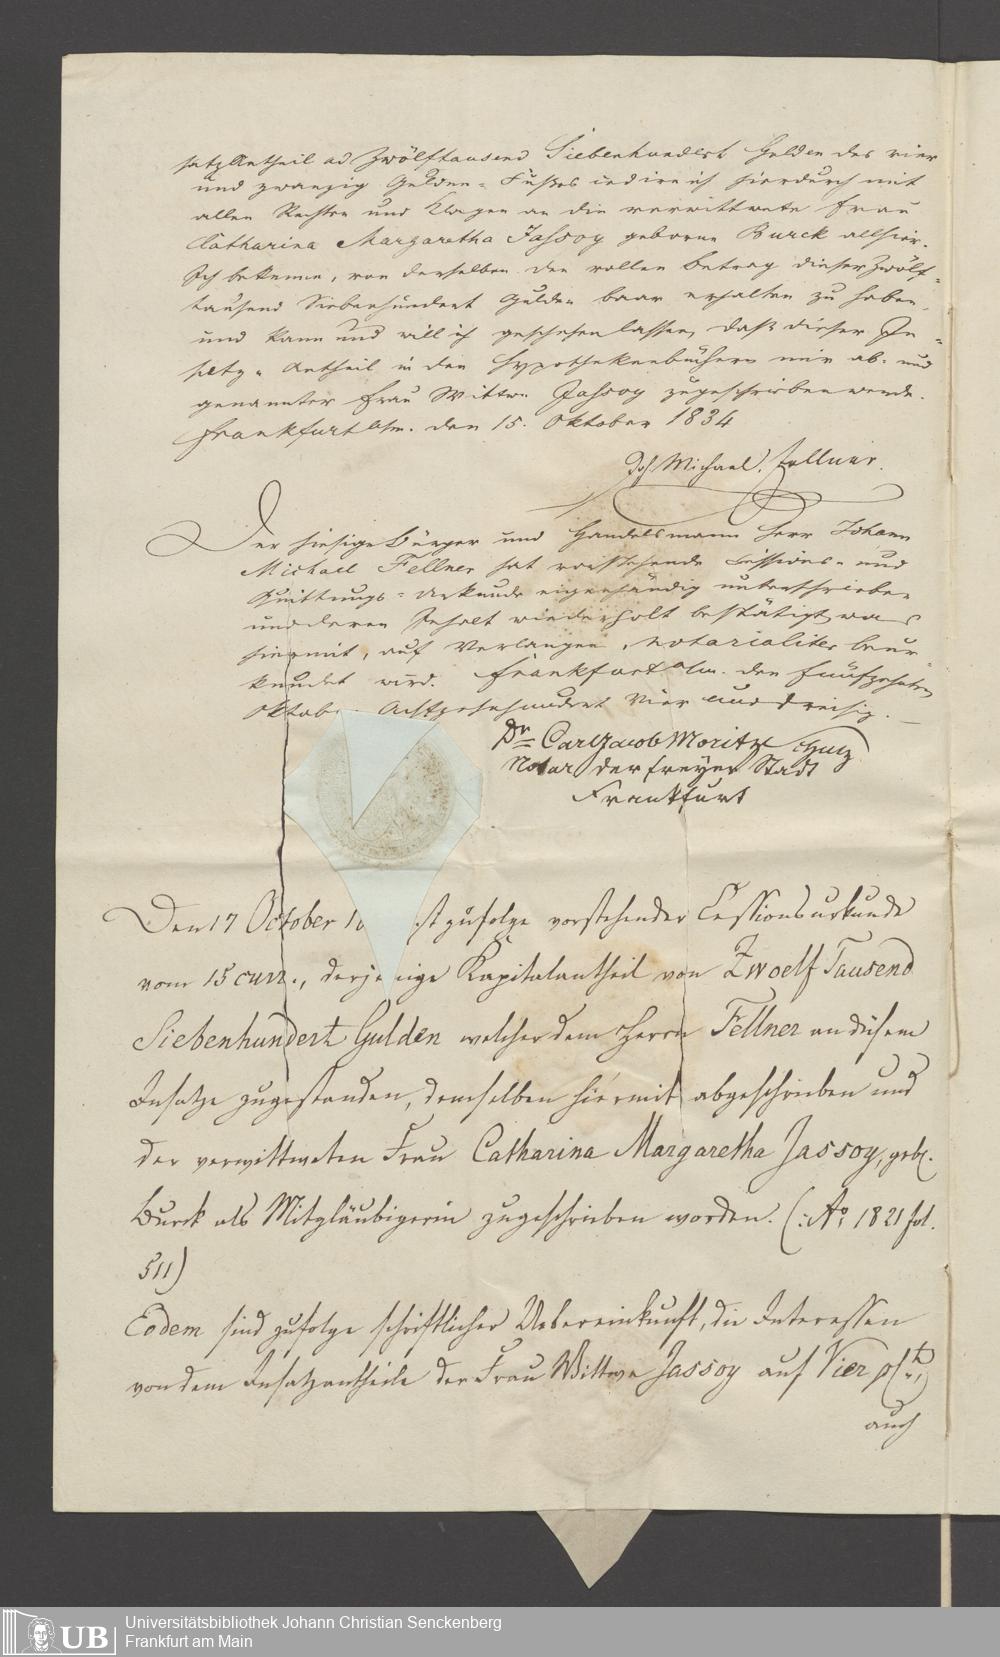 satz Antheil ad Zwölftausend Siebenhundert Gulden des vier
und zwanzig Gulden-Fußes cedire ich hierdurch mit
allen Rechten und Klagen an die verwittwete Frau
Catharina Margaretha Jassoy geborne Burck allhier.
Ich bekenne, von derselben den vollen Betrag dieser Zwölf-
tausend Siebenhundert Gulden baar erhalten zu haben,
und kann und will ich geschehen lassen, daß dieser In-
satz-Antheil in den Hypothekenbüchern mir ab- und
genannter Frau Wittwe Jassoy zugeschrieben werde.
Frankfurt a/m. den 15. Oktober 1834
Joh. Michael Fellner.
Der hiesige Bürger und Handelsmann Herr Johann
Michael Fellner hat vorstehende Cessions- und
Quittungs-Urkunde eigenhändig unterschrieben
und deren Inhalt wiederholt bestätigt, was
hiermit, auf Verlangen, notarialiter beur-
kundet wird. Frankfurt a/m. den fünfzehnten
Oktober Achtzehnhundert Vier und dreisig.
Dr. Carl Jacob Moritz
Notar der freyen Stadt
Frankfurt
Den 17 October 18 ist zufolge vorstehender Cessionsurkunde
vom 15 curr., derjenige Kapitalantheil von Zwoelf Tausend
Siebenhundert Gulden welcher dem Herrn Fellner an diesem
Insatze zugestanden, demselben hiermit abgeschrieben und
der verwittweten Frau Catharina Margaretha Jassoy, geb.
Burck als Mitgläubigerin zugeschrieben worden. (: Ao. 1821 fol.
511)
Eodem sind zufolge schriftlicher Uebereinkunft, die Interessen
von dem Insatzantheile der Frau Wittwe Jassoy auf Vier
auch
UB Universitätsbibliothek Johann Christian Senckenberg
Frankfurt am Main